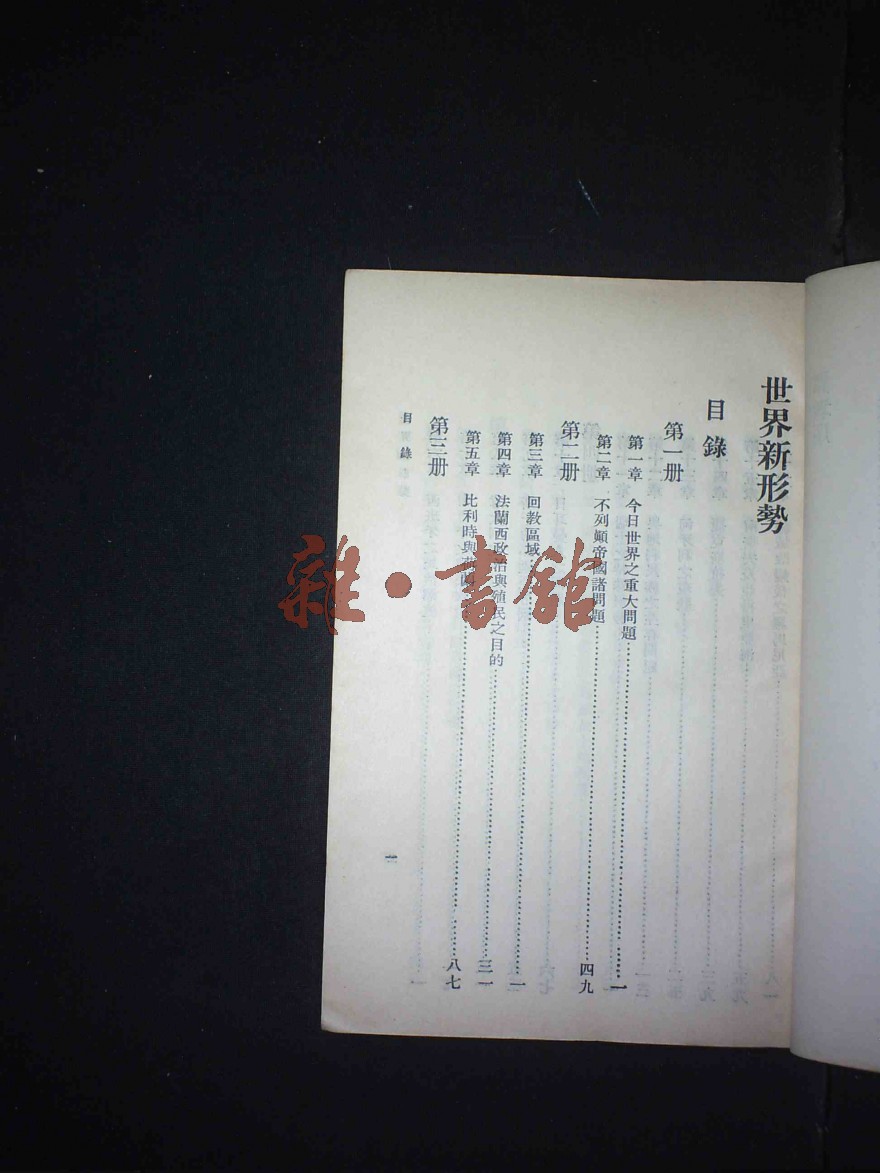 世界新形勢
目錄
第一册
第一章 今日世界之重大問題 一
第二章 不列顛帝國諸問題 四九
第二册
第三章 回教區域 一
第四章 法蘭西政治與殖民之目的 三一
第五章 比利時與 八七
第三册
目錄
一
雜·書館